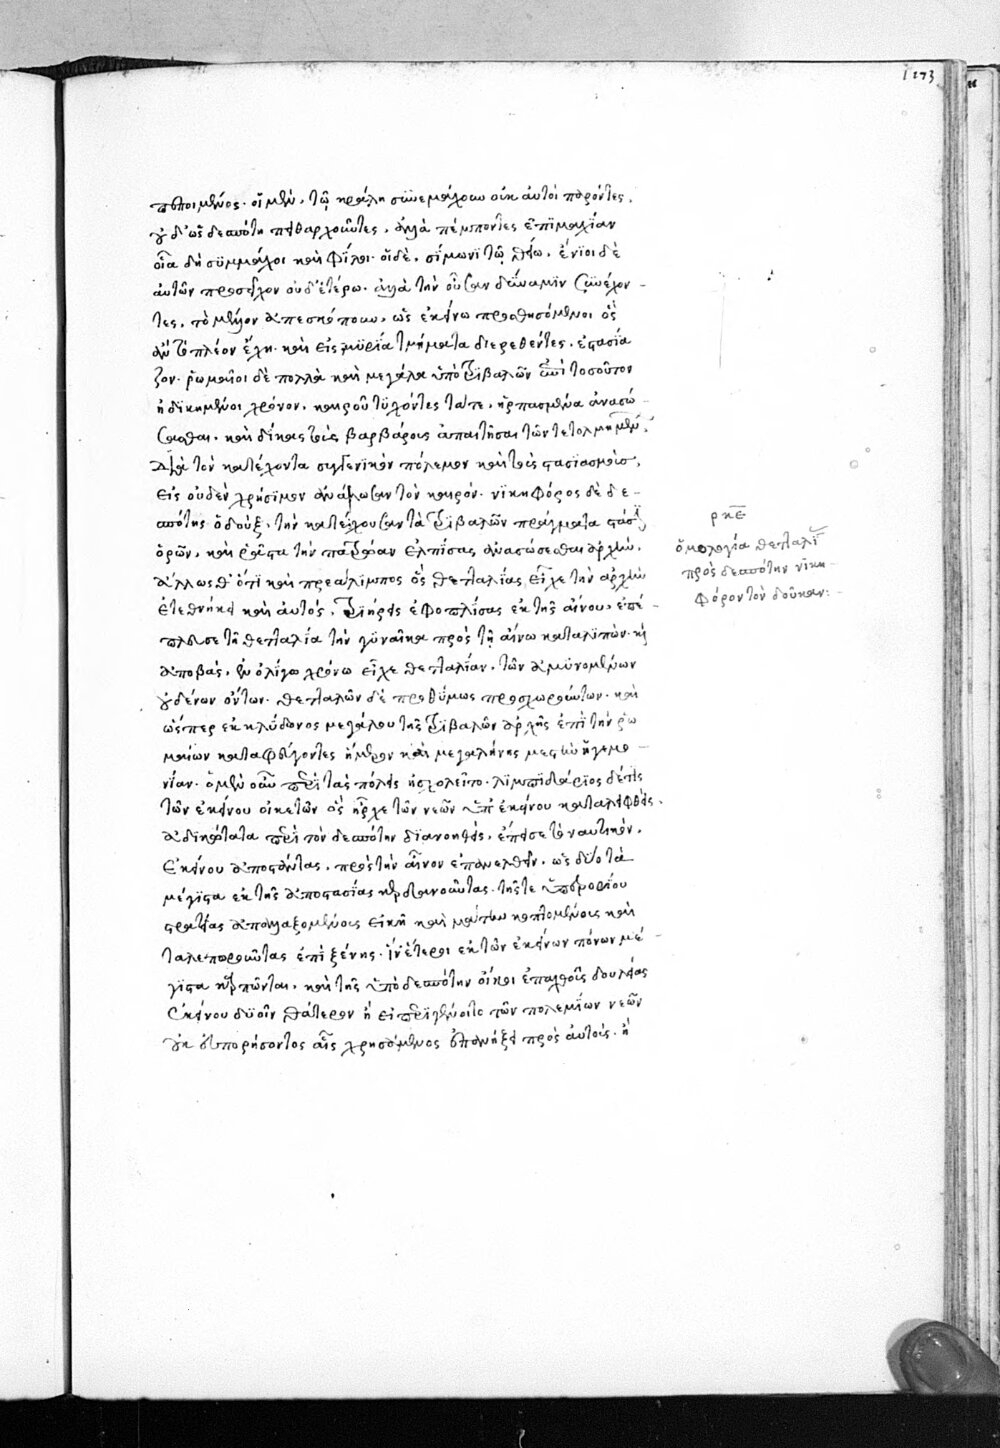 1273
ποιούμενος. οἱ μὲν, τῷ κράλῃ συνεμάχουν οὐκ αὐτοὶ παρόντες,
οὐδ' ὡς δεσπότῃ πειθαρχοῦντες, ἀλλὰ πέμποντες ἐπιμαχίαν
οἷα δὴ σύμμαχοι καὶ φίλοι. οἱ δὲ, σίμωνι τῷ θείῳ. ἔνιοι δὲ
αὐτῶν προσεῖχον οὐδετέρῳ. ἀλλὰ τὴν οὖσαν δύναμιν συνέχον-
τες, τὸ μέλλον ἀπεσκόπουν, ὡς ἐκείνῳ προσθησόμενοι ὃς
ἂν τὸ πλέον ἔχῃ. καὶ εἰς μυρία τμήματα διαιρεθέντες, ἐστασία
ζον. ῥωμαῖοι δὲ πολλὰ καὶ μεγάλα ὑπὸ τριβαλῶν ἐπὶ τοσοῦτον
ἠδικημένοι χρόνον, καιροῦ τυχόντες τά τε, ἡρπασμένα ἀνασώ-
σασθαι. καὶ δίκας τοὺς βαρβάρους ἀπαιτῆσαι τῶν τετολμημένων,
διὰ τὸν κατέχοντα συγγενικὸν πόλεμον καὶ τοὺς στασιασμοὺς,
εἰς οὐδὲν χρήσιμον ἀνάλωσαν τὸν καιρόν. νικηφόρος δὲ δε-
σπότης ὁ δοὺξ, τὴν κατέχουσαν τὰ τριβαλῶν πράγματα στάσιν
ὁρῶν, καὶ ῥᾷστα τὴν πατρῴαν ἐλπίσας ἀνασώσεσθαι ἀρχὴν,
ἄλλως θ' ὅτι καὶ πρεάλιμπος ὃς θετταλίας εἶχε τὴν ἀρχὴν
ἐτεθνήκει καὶ αὐτὸς, τριήρεις ἐφοπλίσας ἐκ τῆς αἴνου, ἐπέ-
πλευσε τῇ θετταλίᾳ τὴν γυναῖκα πρὸς τῇ αἴνῳ καταλιπών. καὶ
ἀποβὰς, ἐν ὀλίγῳ χρόνῳ εἷλε θετταλίαν, τῶν ἀμυνομένων
οὐδένων ὄντων. θετταλῶν δὲ προθύμως προσχωρούντων. καὶ
ὥσπερ ἐκ κλύδωνος μεγάλου τῆς τριβαλῶν ἀρχῆς ἐπὶ τὴν ῥω
μαίων καταφυγόντες ἥμερον καὶ μεγαλήνης μεστὴν ἡγεμο-
νίαν. ὁ μὲν οὖν περὶ τὰς πόλεις ἠσχολεῖτο. λιμπιδάριος δέ τις
τῶν ἐκείνου οἰκετῶν ὃς ἦρχε τῶν νεῶν ὑπ' ἐκείνου καταλειφθεὶς,
ἀδικώτατα περὶ τὸν δεσπότην διανοηθεὶς, ἔπεισε τὸ ναυτικὸν,
ἐκείνου ἀποστάντας, πρὸς τὴν αἶνον ἐπανελθεῖν, ὡς δύο τὰ
μέγιστα ἐκ τῆς ἀποστασίας κερδανοῦντας. τῆς τε ὑπερορίου
στρατείας ἀπαλλαξομένους εἰκῆ καὶ μάτην κοπτομένους καὶ
ταλαιπωροῦντας ἐπὶ ξένης. ἵν' ἕτεροι ἐκ τῶν ἐκείνων πόνων μέ-
γιστα καρπῶνται. καὶ τῆς ὑπὸ δεσπότην οἴκοι ἐπαχθοῦς δουλείας
ἐκείνου δυοῖν θάτερον ἢ εἰ περιγένοιτο τῶν πολεμίων νεῶν
οὐκ εὐπορήσοντος αἷς χρησόμενος ἐπανήξει πρὸς αὐτούς. ἢ
ρκε
ὁμολογία θετταλῶν
πρὸς δεσπότην νικη-
φόρον τὸν δούκαν:-